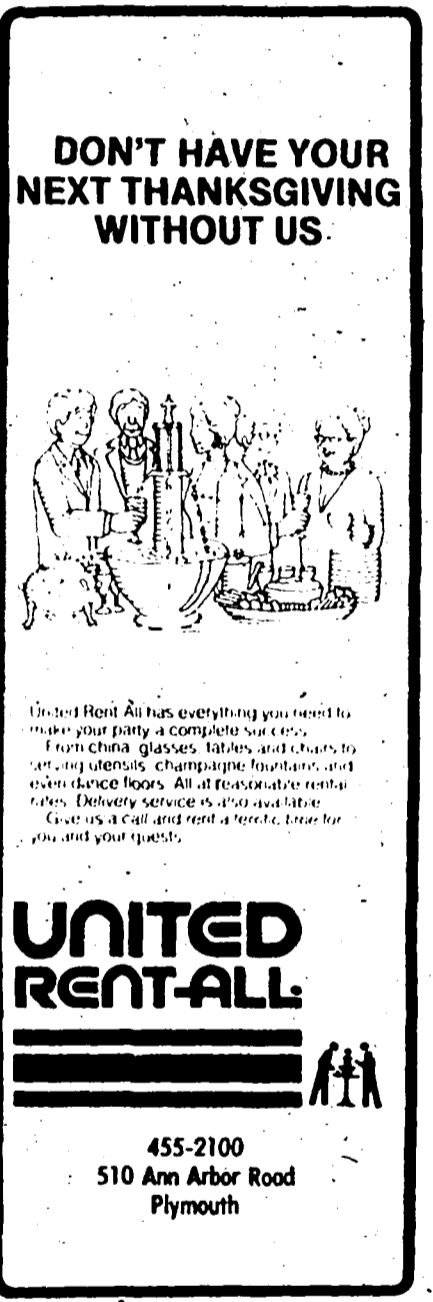 DON'T HAVE YOUR
NEXT THANKSGIVING
WITHOUT US
United Rent All has everything you need to
make your party a complete success.
From china, glasses, tables and chairs to
serving utensils, champagne fountains and
even dance floors. All at reasonable rental
rates. Delivery service is also available.
Give us a call and rent a terrific time for
you and your guests.
UNITED
RENT-ALL
455-2100
510 Ann Arbor Road
Plymouth